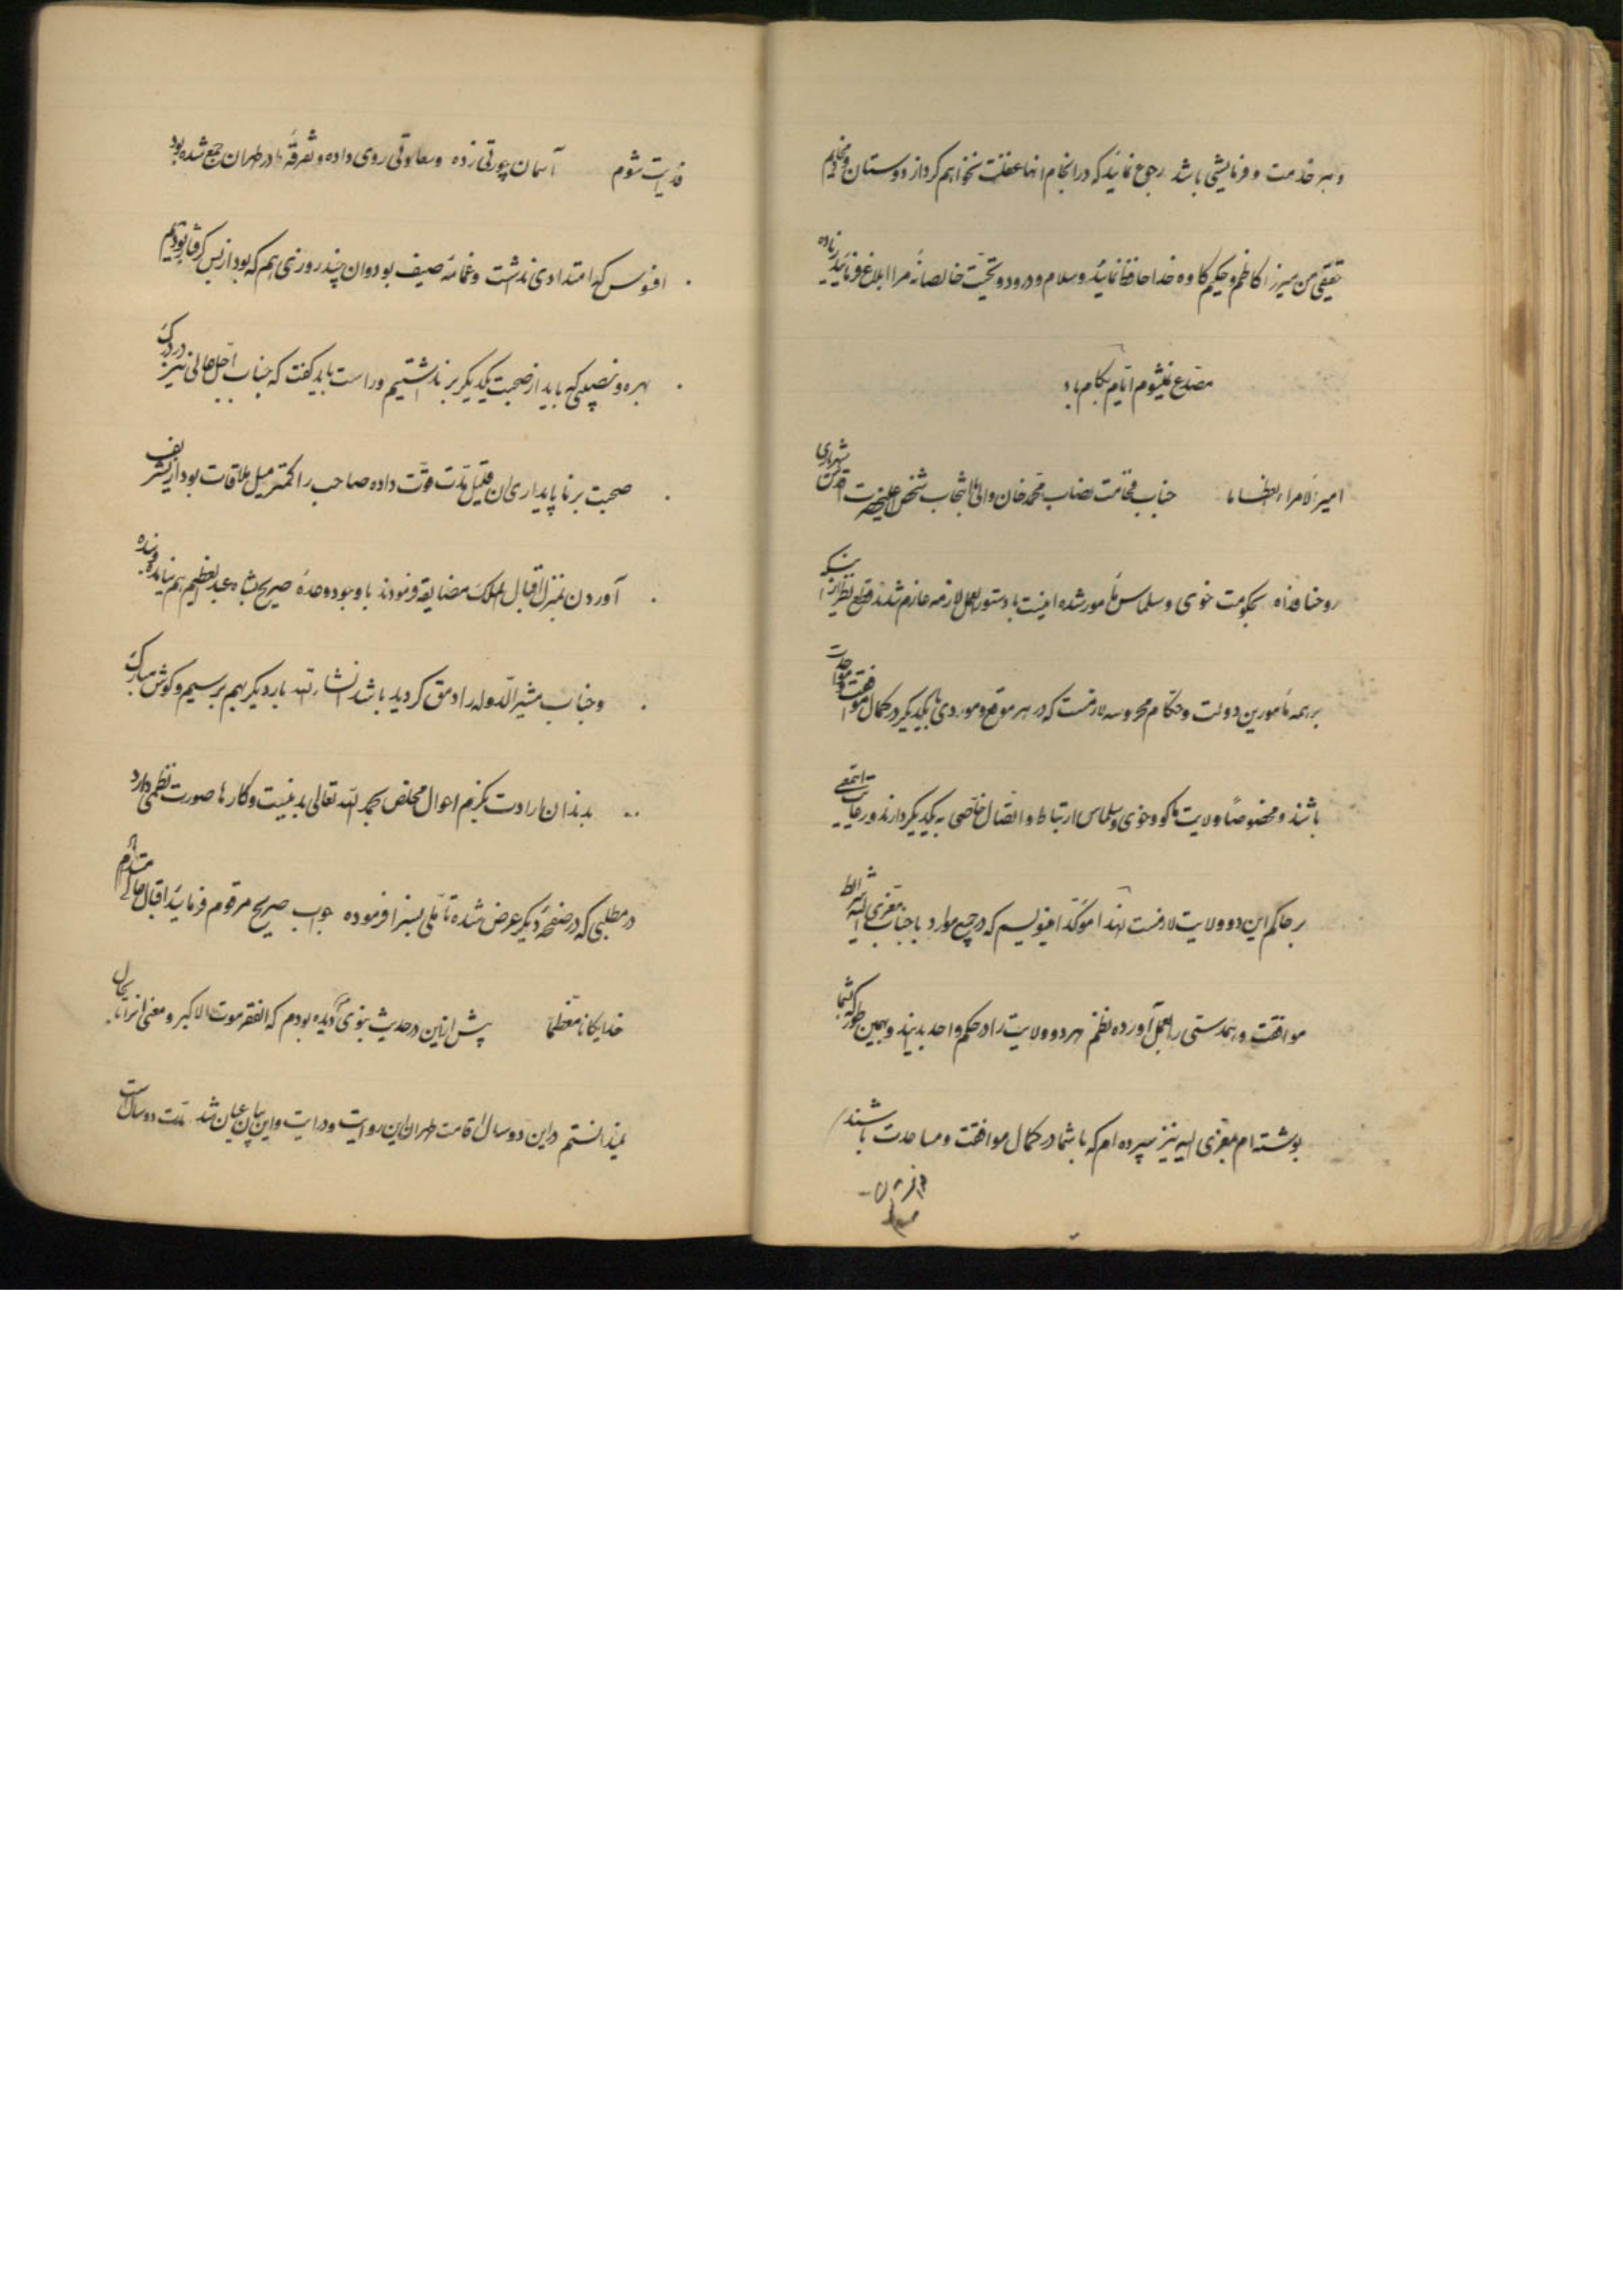 و هر خدمت و فرمایشی باشد رجوع نمائید که در انجام انها غفلت نخواهم کرد از دوستان و مخادیم
من میرزا کاظم و حکیم کاوه خدا حافظ نمائید و سلام و درود و تحیّت خالصانهٔ مرا ابلاغ فرمائید زیاده
مصدع نمیشوم ایّام بکام باد
امیرالامراء العظاما جناب فخامت نصاب محمد خان والی بانتخاب شخص اعلیحضرت اقدس شهریاری
روحنا فداه بحکومت خوی و سلماس مأمور شده اینست با دستورالعمل لازمه عازم شدند قطع نظر از اینکه
بر همه مأمورین دولت و حکام محروسه لازمست که در هر موقع و موردی با یکدیگر در کمال موافقت و مواحدت
باشند و مخصوصاً ولایت ماکو و خوی و سلماس ارتباط و اتصال خاصّی به یکدیگر دارند و رعایت
بر حاکم این دو ولایت لازمست لهذا مؤکداً مینویسم که در جمیع موارد با جناب معزی الیه شرائط
موافقت و همدستی را بعمل آورده نظم هر دو ولایت را در حکم واحد بدانید و بهمین طور که بشما
نوشته ام بمعزی الیه نیز سپرده ام که با شما در کمال موافقت و مساعدت باشند
فدایت شوم آسمان چورتی زده و سعادتی روی داده و تفرقهٔ ما در طهران جمع شده بود
افسوس که امتدادی نداشت و غمامهٔ صیف بود و ان چند روزی هم که بود از بس گرفتار بودیم
بهره و نصیبی که باید از صحبت یکدیگر بر نداشتیم و راست باید گفت که جناب اجل عالی نیز در درک
صحبت بر ناپایداری ان قلیل مدّت قوّت داده صاحب را کمتر میل ملاقات بود از تشریف
آوردن بمنزل اقبال الملک مضایقه فرمودند با وجود وعدهٔ صریح بشاه عبدالعظیم هم نیامده بنده
و جناب مشیرالدوله را دمق کردید باشد انشاء الله بار دیگر بهم برسیم و گوش مبارک
بدندان ارادت بگزم احوال مخلص بحمد الله تعالی بد نیست و کارها صورت نظمی دارد
در مطلبی که در صفحهٔ دیگر عرض شده تأمّلی بسزا فرموده جواب صریح مرقوم فرمائید اقبال عالی مستدام
خدایگانا معظما پیش از این در حدیث نبوی دیده بودم که الفقر موت الاکبر و معنی انرا تا بحال
نمیدانستم در این دو سال اقامت طهران این روایت و درایت و این بیان عیان شد مدّت دو سال است